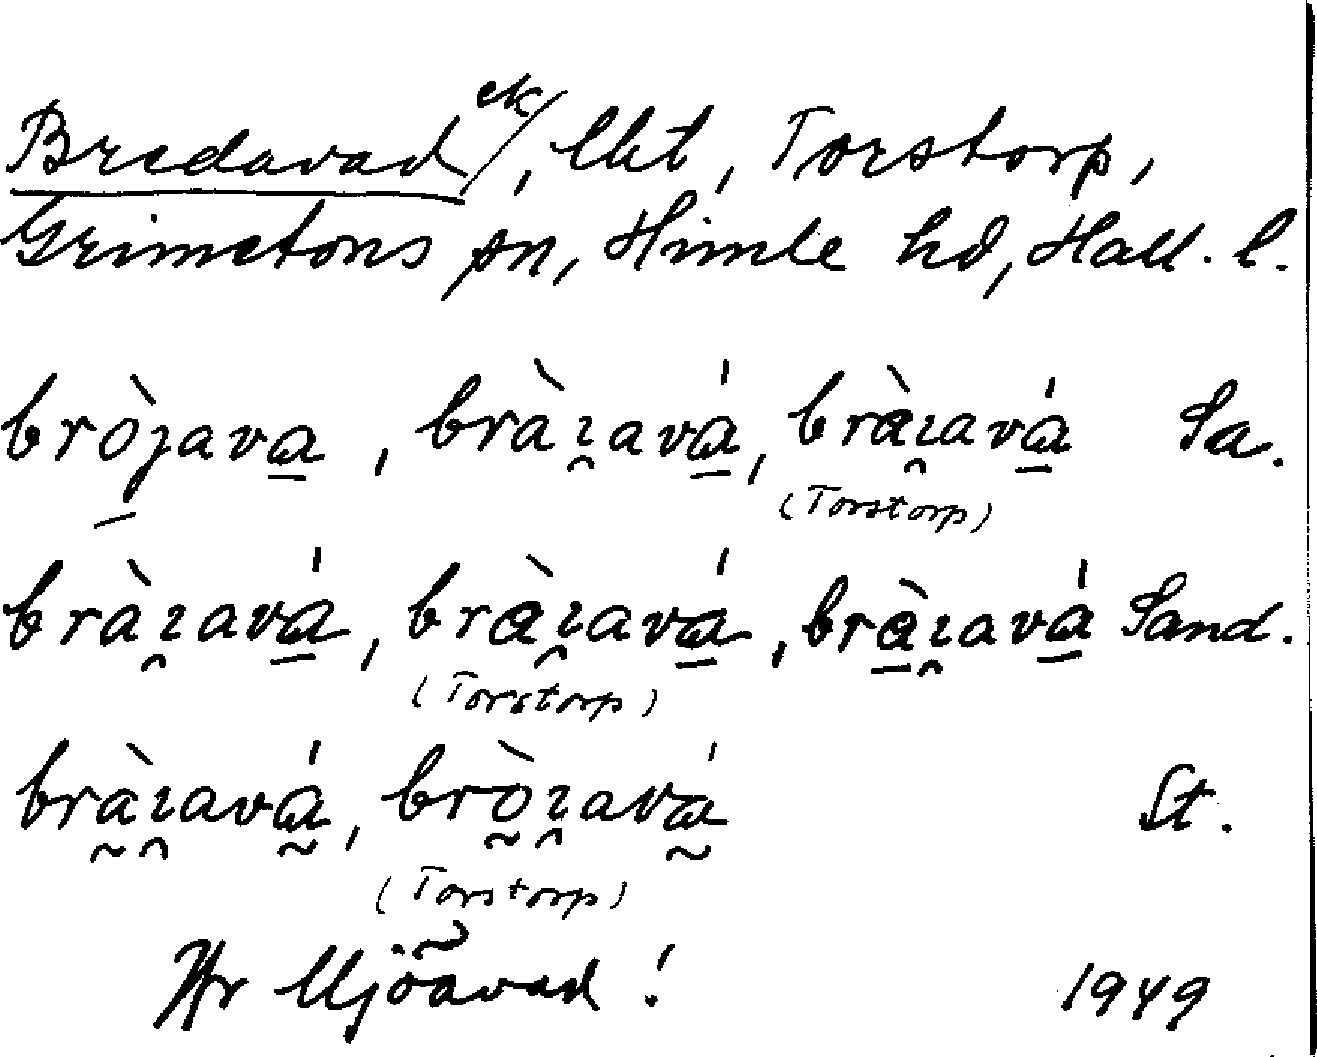 Bredavad ek/, lht, Torstorp,
Grimetons sn, Himle hd, Hall. l.
bròȷava, bràɿavá, bràɿavá Sa.
(Torstorp)
bràɿavá, bràɿavá, bràɿavá Sand.
(Torstorp)
bràɿavá, bròɿavá St.
(Torstorp)
! 1949